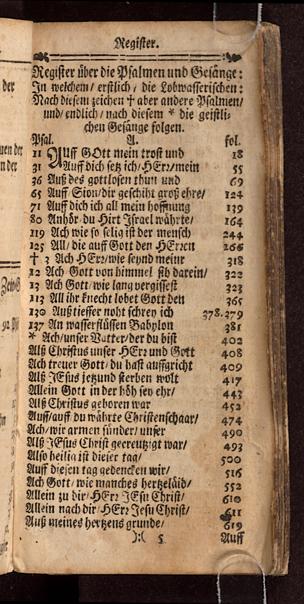 Register.
Register über die Psalmen und Gesänge:
In welchem/ erstlich/ die Lobwasserischen:
Nach diesem zeichen † aber andere Psalmen/
und/ endlich/ nach diesem * die geistli-
chen Gesänge folgen.
Psal. A. fol.
11 Auff GOtt mein trost und 18
31 Auff dich setz ich/ HErr/ mein 55
36 Auß des gottlosen thun und 69
65 Auf Sion/ dir geschiht groß ehre/ 124
71 Auff dich ich all mein hoffnung 139
80 Anhör du Hirt Israel währte/ 164
119 Ach wie so selig ist der mensch 244
125 All/ die auff Gott den HErren 266
† 3 Ach HErr/ wie seynd meiner 318
12 Ach Gott von himmel sih darein/ 322
13 Ach Gott/ wie lang vergissest 323
113 All ihr knecht lobet Gott den 365
130 Auß tieffer noht schrey ich 378.379
137 An wasserflüssen Babylon 381
* Ach/ unser Vatter/ der du bist 402
Alß Christus unser HErr und Gott 408
Ach treuer Gott/ du hast auffgricht 409
Alß JEsus jetzund sterben wolt 417
Allein Gott in der höh sey ehr/ 443
Alß Christus geboren war 452
Auff/ auff du währte Christenschaar/ 474
Ach/ wir armen sünder/ unser 490
Alß JEsus Christ gecreutzigt war/ 493
Also heilig ist dieser tag/ 500
Auff diesen tag gedencken wir/ 516
Ach Gott/ wie manches hertzeläid/ 552
Allein zu dir/ HErr JEsu Christ/ 610
Allein nach dir/ HErr Jesu Christ/ 611
Auß meines hertzens grunde/ 619
):( 5 Auff